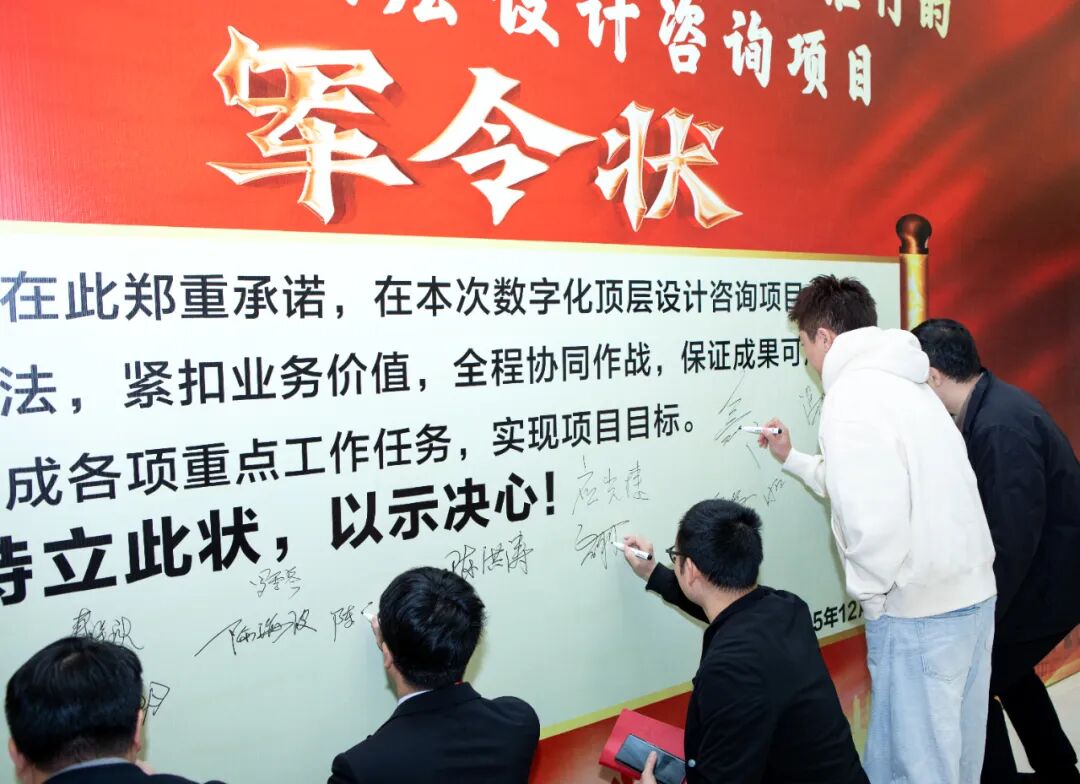 层设计咨询项目
军令状
在此郑重承诺，在本次数字化顶层设计咨询项目
法，紧扣业务价值，全程协同作战，保证成果可
成各项重点工作任务，实现项目目标。
特立此状，以示决心！
应光捷
陈洪涛
陈海波
陈
5年12月